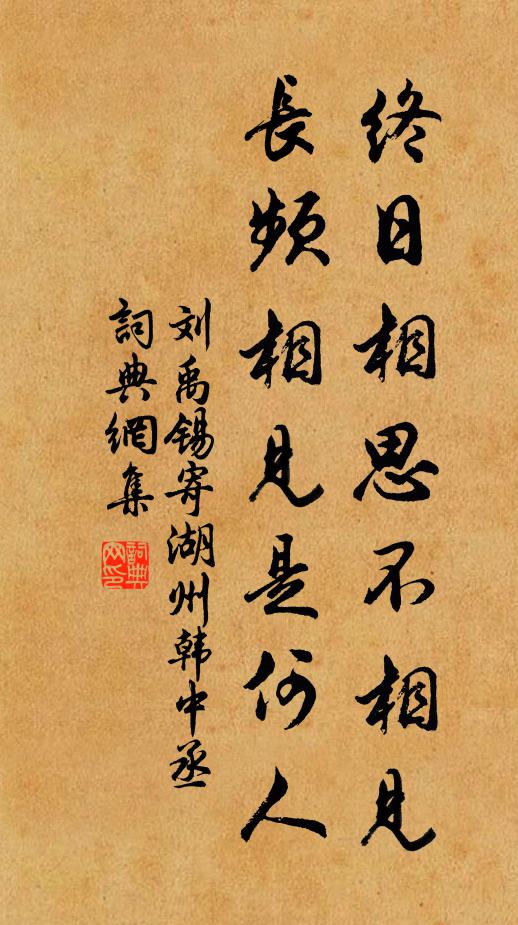 终日相思不相见
長频相見是何人
刘禹锡寄湖州韩中丞
詞典網集
詞典網印